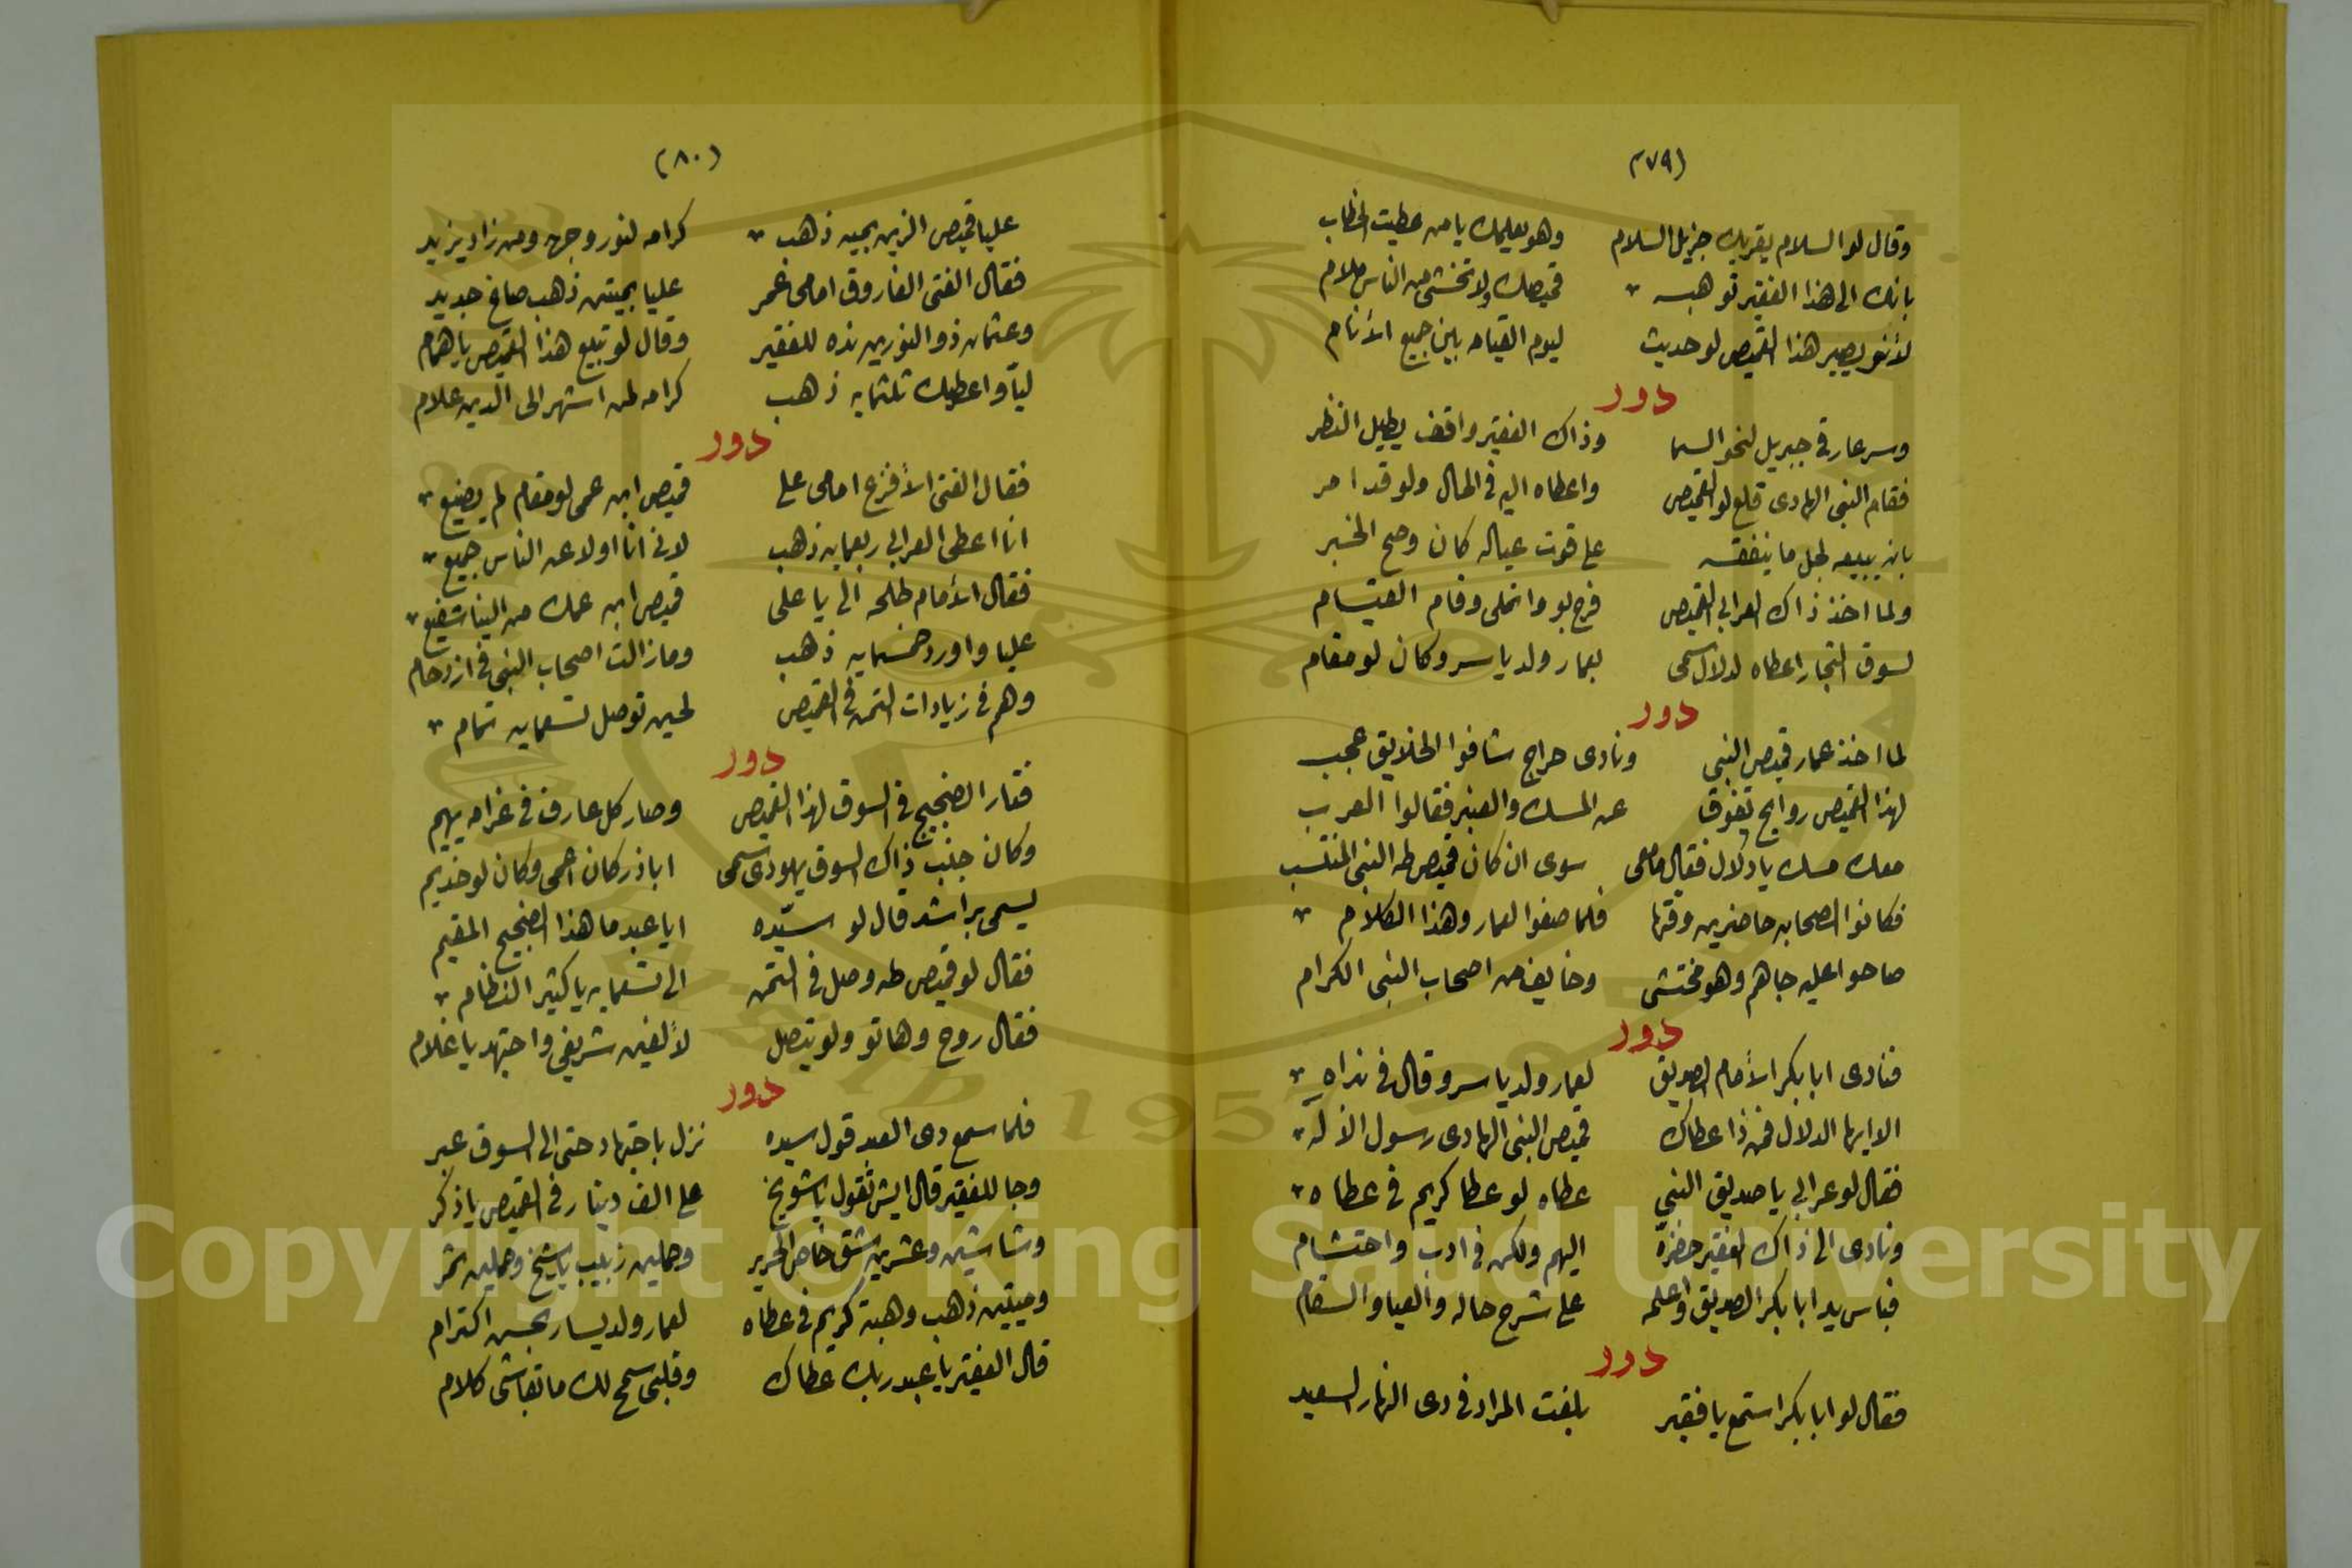 (٧٩)
وقال لو السلام يقريك جزيل السلام وهو يعليمك يا من عطيت الخطاب
بانك الى هذا الفقير توهبه قميصك ولا تخشى من الناس ملام
لأنو يصير هذا القميص لو حديث ليوم القيامه بين جميع الأنام
دور
وسرعا رقى جبريل لنحو السما وذاك الفقير واقف يطيل النظر
فقام النبى الهادى قلع لو القميص واعطاه اليه فى الحال ولو قد امر
بانه يبيعه لجل ما ينفقه على قوت عياله كان وصح الخبر
ولما اخذ ذاك العرابى القميص فرح بو واتملى وقام القيسام
لسوق التجار اعطاه لدلال سمى بعمار ولد ياسر وكان لو مقام
دور
لما اخذ عمار قميص النبى ونادى حراج شافوا الخلايق عجب
لهذا القميص روايح تفوق عن المسك والعنبر فقالوا العرب
معك مسك يا دلال فقال ما معى سوى ان كان قميص طه النبى المنتسب
فكانوا الصحابه حاضرين وقتها فلما صغوا لعمار وهذا الكلام
صاحوا عليه جاهم وهو مختشى وخايف من اصحاب النبى الكرام
دور
فنادى ابا بكر الأمام الصديق لعمار ولد ياسر وقال فى نداه
الا ايها الدلال فمن ذا عطاك قميص النبى الهادى رسول الأله
فقال لو عرابى يا صديق النبى عطاه لو عطا كريم فى عطاه
ونادى الى ذاك الفقير حضره اليهم ولكن فى ادب واحتشام
فباس يد ابا بكر الصديق واعلمه على شرح حاله والعيا والسقام
دور
فقال لو ابا بكر استمع يا فقير بلغت المراد فى دى النهار السعيد
(٨٠)
عليا قميص الزين بميه ذهب كرامه لنور وجهه ومن زاد يزيد
فقال الفتى الفاروق امامى عمر عليا بميتين ذهب صاغ جديد
وعثمان ذو النورين نده للفقير وقال لو تبيع هذا القميص يا همام
ليا واعطيك ثلثمايه ذهب كرامه لمن اشهر الى الدين علام
دور
فقال الفتى الأفزع امامى على قميص ابن عمى لو مقام لم يضيع
انا اعطى العرابى ربعمايه ذهب لانى انا اولا عن الناس جميع
فقال الأمام طلحه الى يا على قميص ابن عمك من الينا شفيع
عليا واورد خمسمايه ذهب ومازالت اصحاب النبى فى ازدحام
وهم فى زيادات التمن فى القميص لحين توصل تسعمايه تمام
دور
فتار الضجيج فى السوق لهذا القميص وصار كل عارف فى غرامه يهيم
وكان جنب ذاك السوق يهودى سمى اباذر كان اعمى وكان لو خديم
يسمى براشد قال لو سيده ايا عبد ما هذا الضجيج المقيم
فقال لو قميص طه وصل فى التمن الى تسعمايه يا كثير النظام
فقال روح وهاتو ولو يتصل لألفين شريفى واجتهد يا غلام
دور
فلما سمع دى العبد قول سيده نزل باجتهاد حتى الى السوق عبر
وجا للفقير قال ايش تقول يا شويخ على الف دينار فى القميص يا ذكر
وشاشين وعشرين شقق خاص الحرير وحملين زبيب يا شيخ وحملين تمر
وميتين ذهب وهبة كريم فى عطاه لعمار ولد يسار بحسن اكترام
قال الفقير يا عبد ربك عطاك وقلبى سمح لك ما تقاشى كلام
Copyright © King Saud University
1957